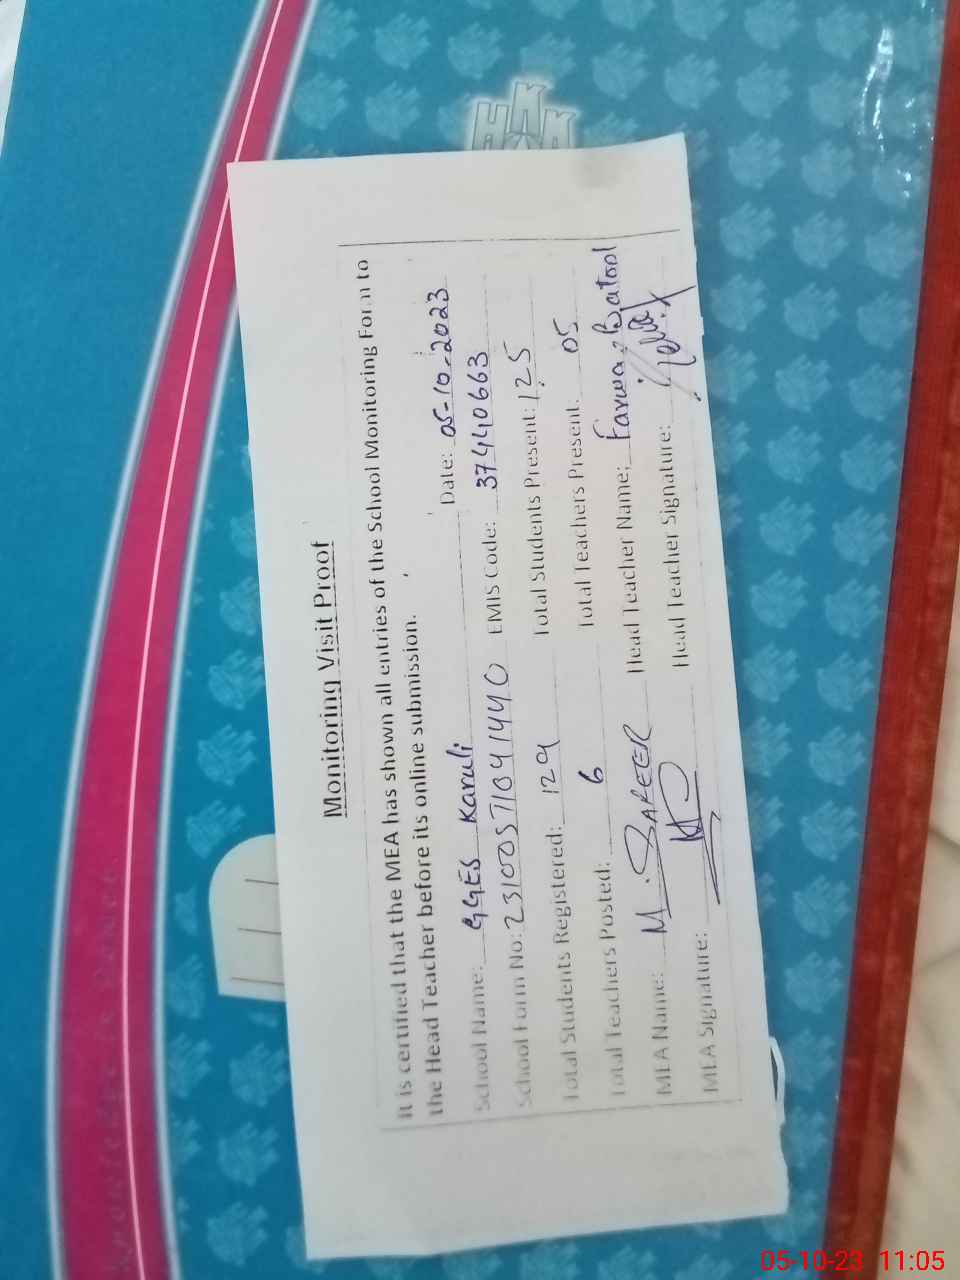 Monitoring Visit Proof
It is certified that the MEA has shown all entries of the School Monitoring Form to
the Head Teacher before its online submission.
School Name: GGES Karuli Date: 05-10-2023
School Form No: EMIS Code: 37440663
Total Students Registered: 129 Total Students Present: 125
Total Teachers Posted: 6 Total Teachers Present: 05
MEA Name: M. SAFEER Head Teacher Name: Farwa Batool
MEA Signature: Head Teacher Signature:
05-10-23 11:05